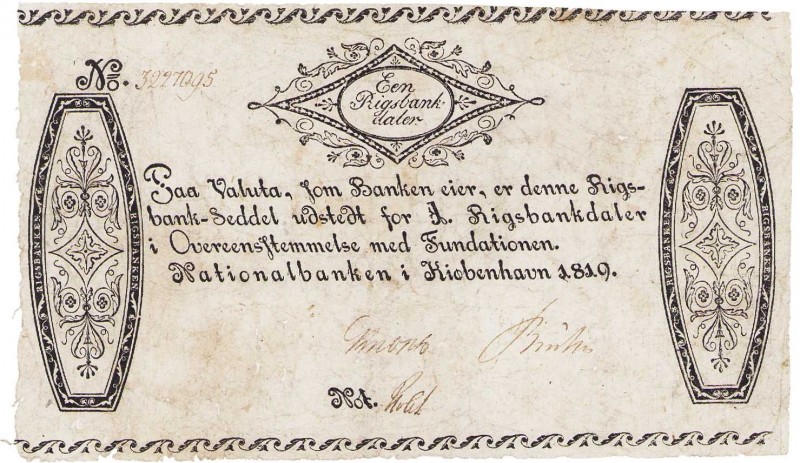 No. 3227095
Een
Rigsbank-
daler
Paa Valuta, som Banken eier, er denne Rigs-
bank-Seddel udstedt for 1. Rigsbankdaler
i Overeensstemmelse med Fundationen.
Nationalbanken i Kiøbenhavn 1819.
Not.
RIGSBANKEN
RIGSBANKEN
RIGSBANKEN
RIGSBANKEN